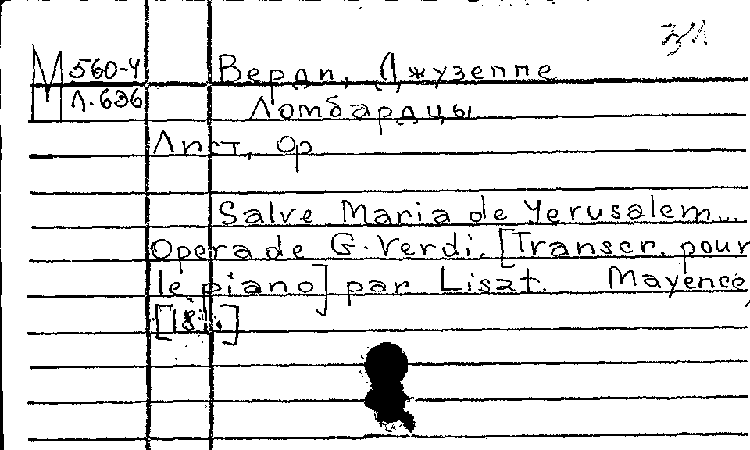 М 560-4 Верди, Джузеппе
Л.636 Ломбардцы
Лист, Ф
Salve Maria de Yerusalem...
Opera de G. Verdi. [Transcr. pour
le piano] par Liszt. Mayence,